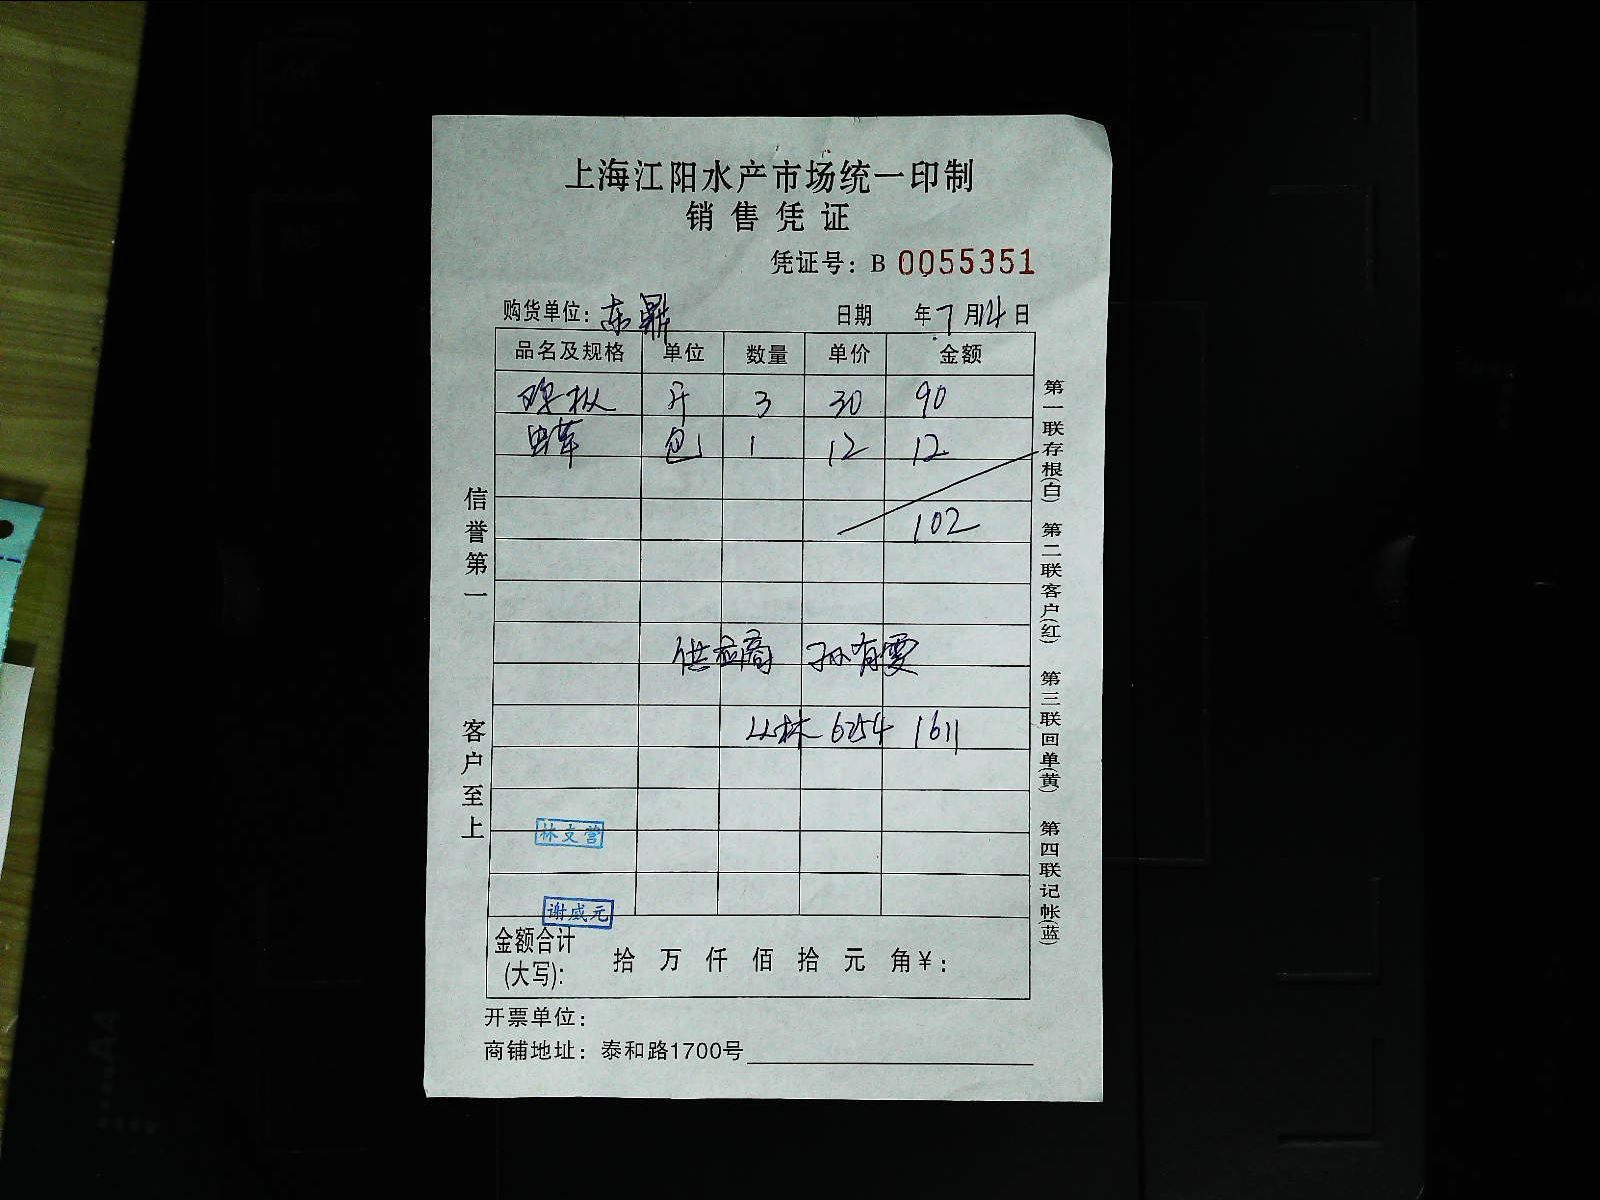 上海江阳水产市场统一印制
销售凭证
凭证号：B 0055351
购货单位：东鼎 日期 年7月14日
品名及规格 单位 数量 单价 金额
斤 3 30 90
虫草 包 1 12 12
102
供应商 孙有雯
6254 1611
林支营
谢威元
金额合计
(大写): 拾 万 仟 佰 拾 元 角¥：
开票单位：
商铺地址：泰和路1700号
信誉第一
客户至上
第一联存根(白) 第二联客户(红) 第三联回单(黄) 第四联记帐(蓝)